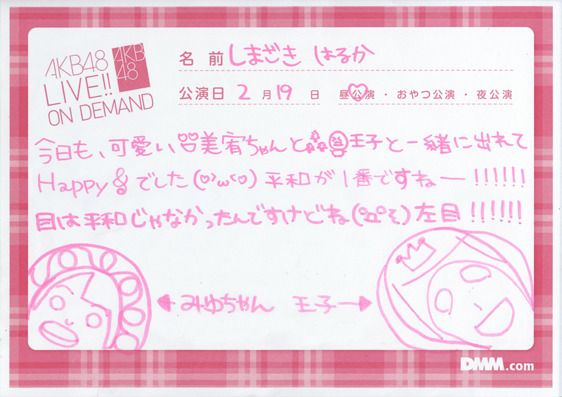 AKB48
LIVE!!
ON DEMAND
AKB
48
名前 しまざき はるか
公演日 2月19日 昼公演・おやつ公演・夜公演
今日も、可愛い美宥ちゃんと王子と一緒に出れて
Happyでした(・ω・)平和が1番ですねー!!!!!!
目は平和じゃなかったんですけどね 左目!!!!!!
みゆちゃん 王子
DMM.com